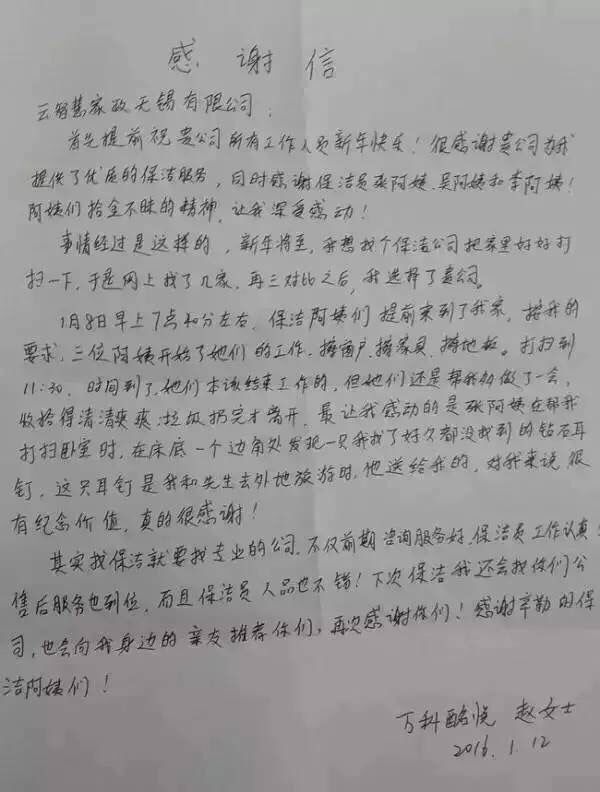 感谢信
云智慧家政无锡有限公司:
首先提前祝贵公司所有工作人员新年快乐!很感谢贵公司为我
提供了优质的保洁服务,同时感谢保洁员张阿姨、吴阿姨和李阿姨!
阿姨们拾金不昧的精神,让我深受感动!
事情经过是这样的,新年将至,我想找个保洁公司把家里好好打
扫一下,于是网上找了几家,再三对比之后,我选择了贵公司。
1月8日早上7点40分左右,保洁阿姨们提前来到了我家,按我的
要求,三位阿姨开始了她们的工作,擦窗户、擦家具、擦地板。打扫到
11:30,时间到了,她们本该结束工作的,但她们还是帮我多做了一会,
收拾得清清爽爽,垃圾扔完才离开,最让我感动的是张阿姨在帮我
打扫卧室时,在床底一个边角处发现一只我找了好久都没找到的钻石耳
钉,这只耳钉是我和先生去外地旅游时,他送给我的,对我来说很
有纪念价值,真的很感谢!
其实找保洁就要找专业的公司,不仅前期咨询服务好,保洁员工作认真,
售后服务也到位,而且保洁员人品也不错!下次保洁我还会找你们公
司,也会向我身边的亲友推荐你们,再次感谢你们!感谢辛勤的保
洁阿姨们!
万科酩悦 赵女士
2016.1.12